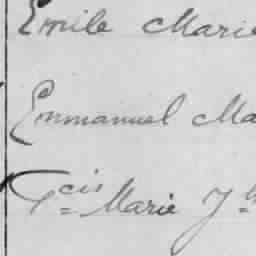 Emile Marie
Emmanuel Ma
Fcis Marie Jh